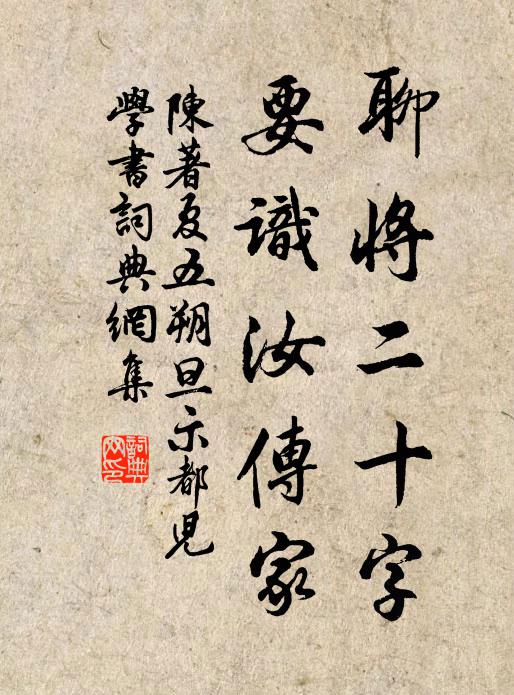 聊將二十字
要識汝傳家
陳著夏五朔旦示都兒
學書詞典網集
詞典网印